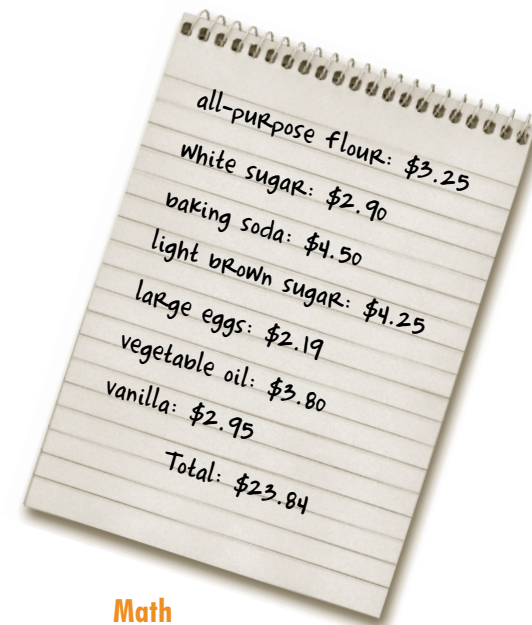 all-purpose flour: $3.25
white sugar: $2.90
baking soda: $4.50
light brown sugar: $4.25
large eggs: $2.19
vegetable oil: $3.80
vanilla: $2.95
Total: $23.84
Math